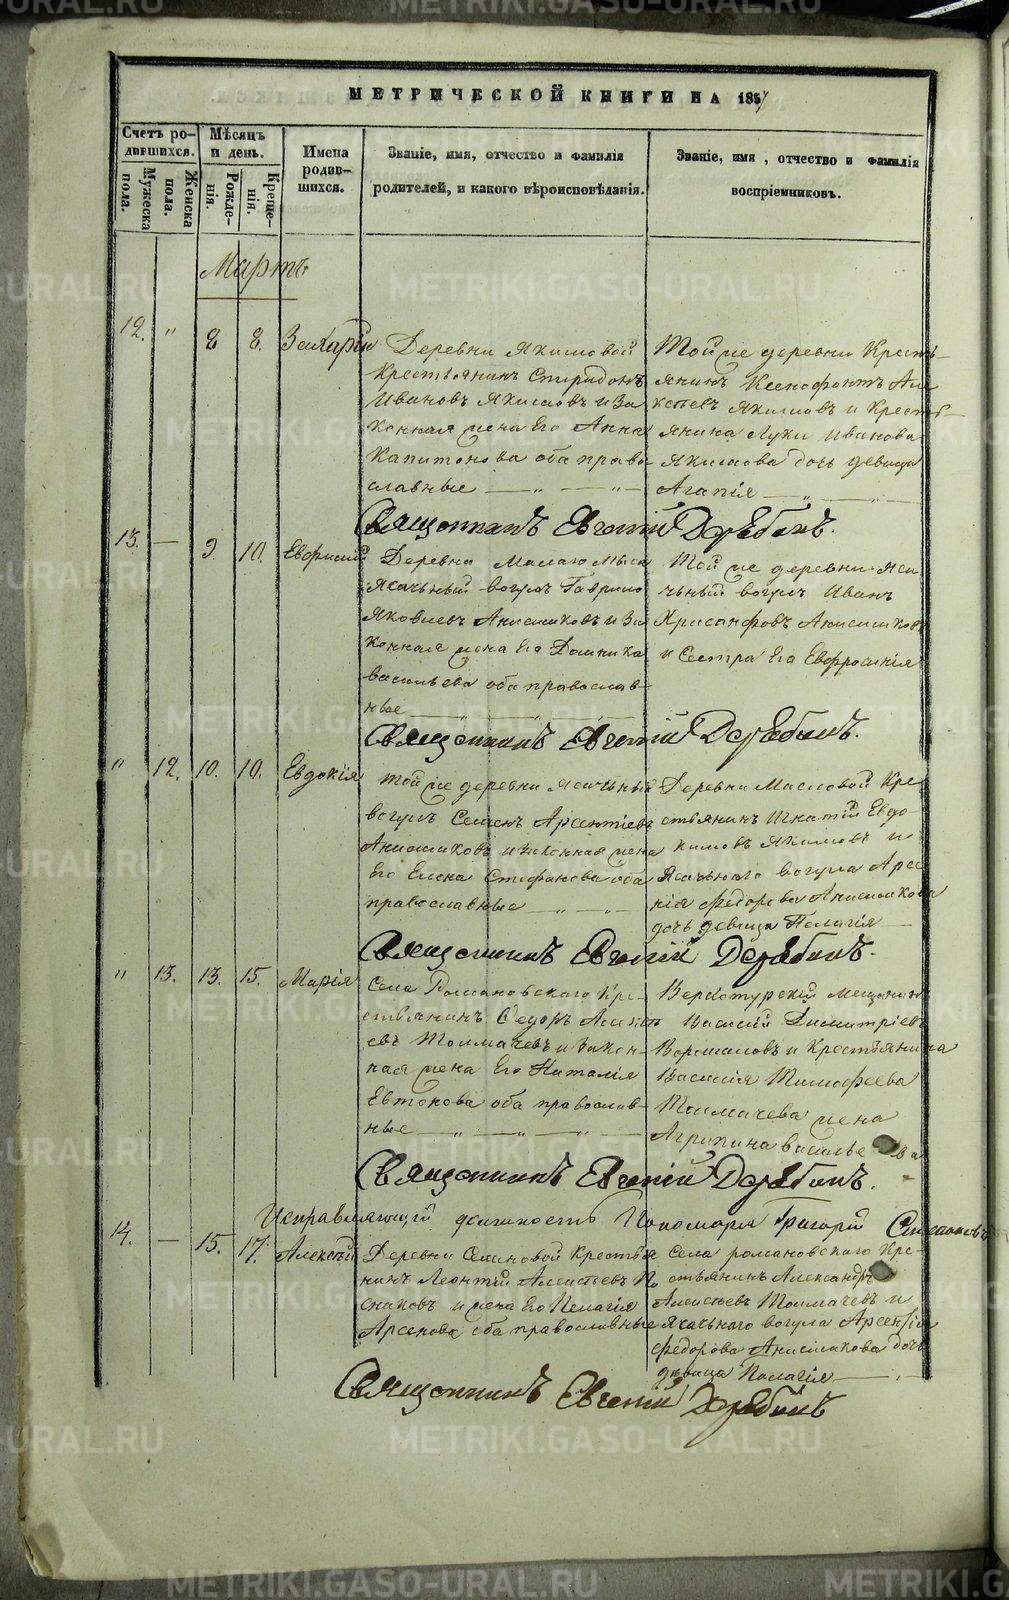 МЕТРИЧЕСКОЙ КНИГИ НА 1857
Счетъ ро-
дившихся.
Мужеска
пола.
Женска
пола.
Мѣсяцъ
и день.
Рожде-
нія.
Креще-
нія.
Имена
родив-
шихся.
Званіе, имя, отчество и фамилія
родителей, и какого вѣроисповѣданія.
Званіе, имя, отчество и фамилія
воспріемниковъ.
Мартъ
12. " 8 8. Захарій
Деревни Якимовой
Крестьянинъ Спиридонъ
Ивановъ Якимовъ и За
конная жена Его Анна
Капитонова оба право-
славные — " — " —
Той же деревни Кресть-
янинъ Ксенофонтъ Але
ксѣевъ Якимовъ и Кресть-
янина Луки Иванова
Якимова дочь девица
Агапія — " — " —
Священникъ Евгеній Дерябинъ.
13. — 9. 10.
Деревни
Ясачный вогулъ Гаврило
Яковлевъ Анисимковъ и За
конная жена Его Домника
Васильева оба православ-
ные
Той же деревни Яса
чный вогулъ Иванъ
Хрисанфовъ Анисимковъ
и Сестра Его Евфросинія
Священникъ Евгеній Дерябинъ.
" 12. 10. 10. Евдокія
Той же деревни Ясачный
вогулъ Семенъ Арсентіевъ
Анисимковъ и законная жена
Его Елена Стефанова оба
православные — " — " —
Деревни Масловой Кре
стьянинъ Игнатій Евдо-
кимовъ Якимовъ и
Ясачнаго вогула Арсе
нія Федорова Анисимкова
дочь девица Пелагія —
Священникъ Евгеній Дерябинъ.
" 13. 13. 15. Марія
Села Романовскаго Кре-
стьянинъ Федоръ Алексѣ
евъ Толмачевъ и Закон-
ная жена Его Наталія
Евтонова оба православ-
ные — " — " — " —
Верхотурскій Мещанинъ
Василій Димитріевъ
и Крестьянина
Василія Тимофеева
Толмачева жена
Агрипина Васильева
Священникъ Евгеній Дерябинъ.
Исправляющій должность Пономаря Григорій
14. — 15. 17. Алексѣй
Деревни Семиновой Крестья
нинъ Леонтій Алексѣевъ По
снаковъ и жена Его Пелагія
Арсенова оба православные
Села романовскаго Кре-
стьянинъ Александръ
Алексѣевъ Толмачевъ и
Ясачнаго вогула Арсенія
Федорова Анисимкова дочь
девица Пелагія — " —
Священникъ Евгеній Дерябинъ
METRIKI.GASO-URAL.RU